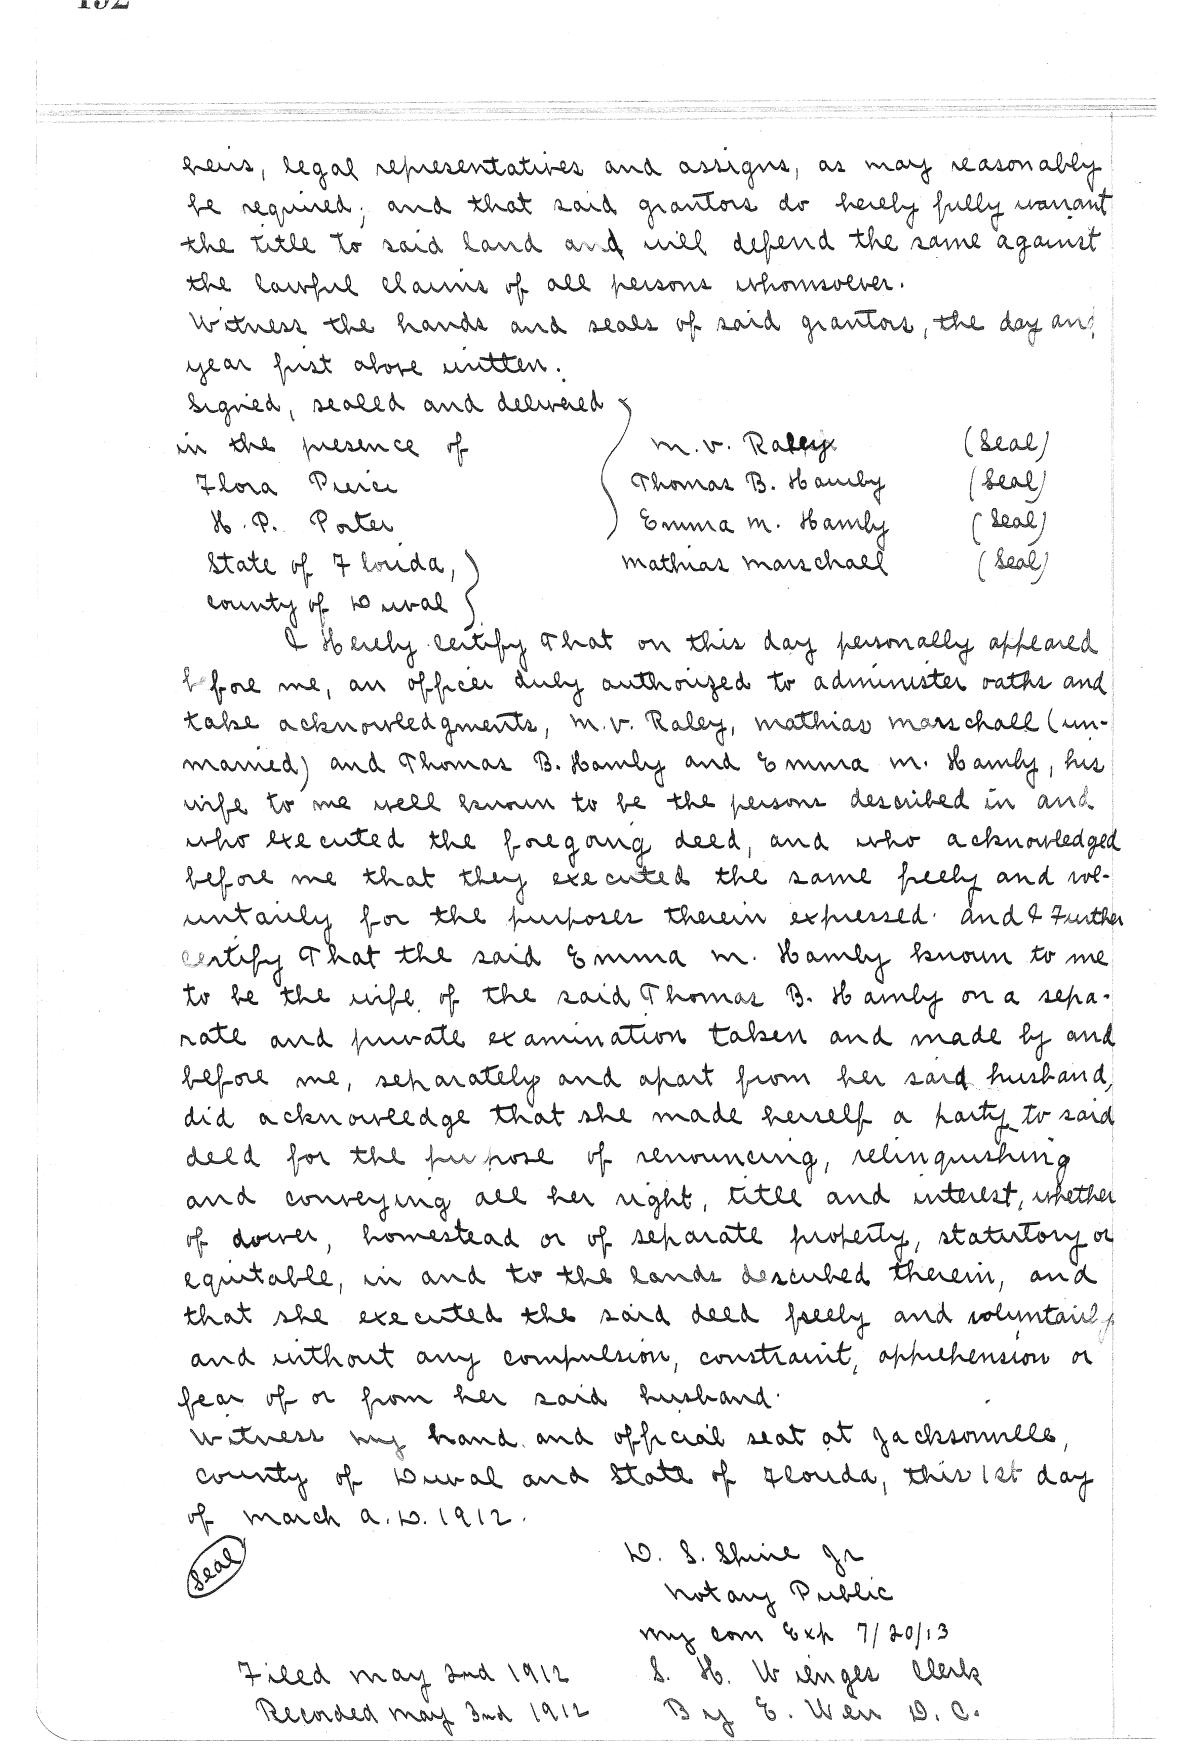 heirs, legal representatives and assigns, as may reasonably
be required; and that said grantors do hereby fully warrant
the title to said land and will defend the same against
the lawful claims of all persons whomsoever.
Witness the hands and seals of said grantors, the day and
year first above written.
Signed, sealed and delivered
in the presence of M. V. Raley (Seal)
Flora Pierce Thomas B. Hamby (Seal)
H. P. Porter Emma M. Hamby (Seal)
State of Florida, Mathias Marschall (Seal)
County of Duval
I Hereby certify That on this day personally appeared
before me, an officer duly authorized to administer oaths and
take acknowledgments, M. V. Raley, Mathias Marschall (un-
married) and Thomas B. Hamby and Emma M. Hamby, his
wife to me well known to be the persons described in and
who executed the foregoing deed, and who acknowledged
before me that they executed the same freely and vol-
untarily for the purposes therein expressed. And I Further
certify That the said Emma M. Hamby known to me
to be the wife of the said Thomas B. Hamby on a sepa-
rate and private examination taken and made by and
before me, separately and apart from her said husband,
did acknowledge that she made herself a party to said
deed for the purpose of renouncing, relinquishing
and conveying all her right, title and interest, whether
of dower, homestead or of separate property, statutory or
equitable, in and to the lands described therein, and
that she executed the said deed freely and voluntarily
and without any compulsion, constraint, apprehension or
fear of or from her said husband.
Witness my hand and official seal at Jacksonville,
County of Duval and State of Florida, this 1st day
of March A. D. 1912.
Seal D. S. Shine Jr
Notary Public
My Com Exp 7/20/13
Filed May 2nd 1912 S. H. Wienges Clerk
Recorded May 3rd 1912 By E. D. C.